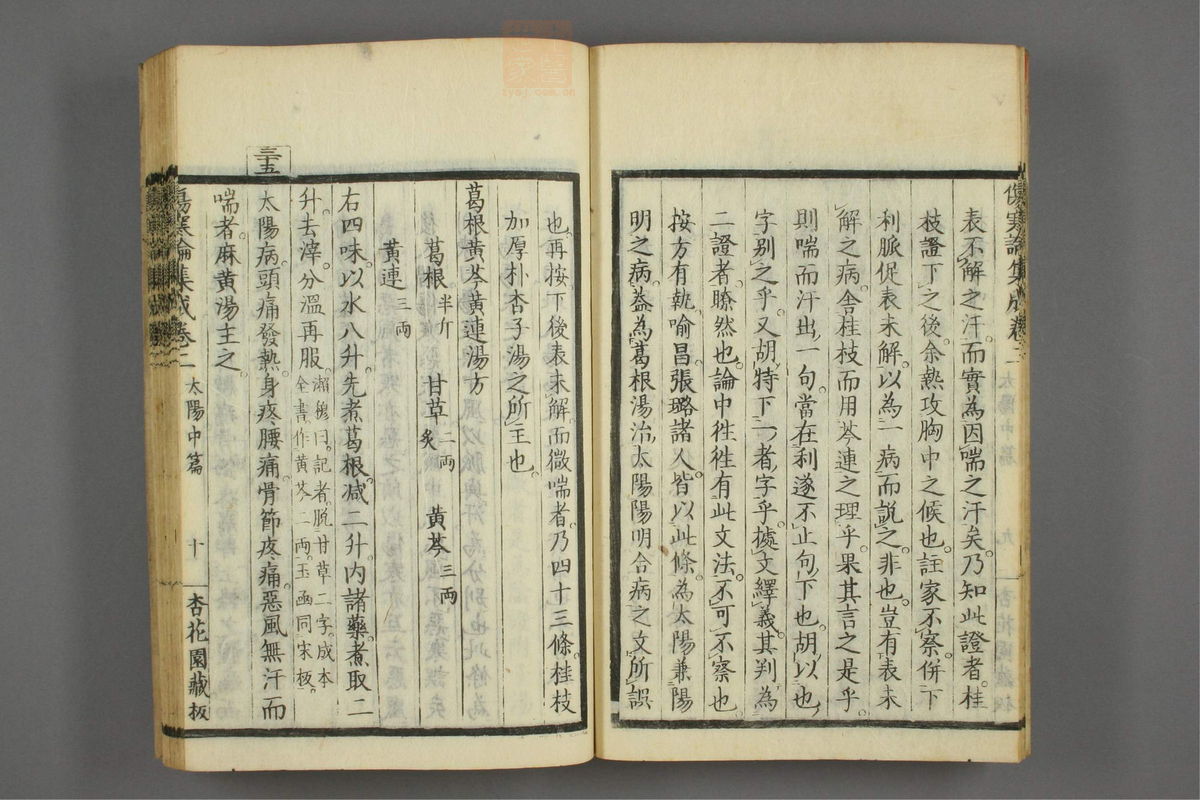 表不解之汗而實為因喘之汗矣乃知此證者桂
枝證下之後余熱攻胸中之候也註家不察併下
利脈促表未解以為一病而說之非也豈有表未
解之病舍桂枝而用芩連之理乎果其言之是乎
則喘而汗出一句當在利遂不止句下也胡以也
字別之乎又胡特下一者字乎據文繹義其判為
二證者瞭然也論中徃徃有此文法不可不察也
按方有執喻昌張璐諸人皆以此條為太陽兼陽
明之病葢為葛根湯治太陽陽明合病之文所誤
傷寒論集成卷二
也再按下後表未解而微喘者乃四十三條桂枝
加厚朴杏子湯之所主也
葛根黃芩黃連湯方
葛根半斤 甘草二兩炙 黃芩三兩
黃連三兩
右四味以水八升先煮葛根減二升內諸藥煮取二
升去滓分溫再服瀨穆曰記者脫甘草二字成本
全書作黃芩二兩玉函同宋板
三五
太陽病頭痛發熱身疼腰痛骨節疼痛惡風無汗而
喘者麻黃湯主之
傷寒論集成卷二 太陽中篇 十 杏花園藏板